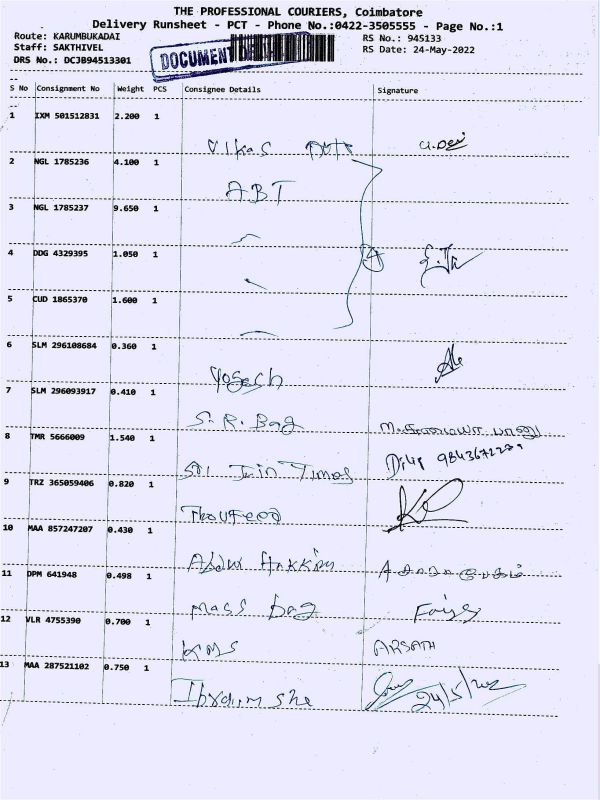 THE PROFESSIONAL COURIERS, Coimbatore
Delivery Runsheet - PCT - Phone No.:0422-3505555 - Page No.:1
Route: KARUMBUKADAI RS No.: 945133
Staff: SAKTHIVEL RS Date: 24-May-2022
DRS No.: DCJB94513301
DOCUMENT
S No Consignment No Weight PCS Consignee Details Signature
1 IXM 501512831 2.200 1
Vikas
2 NGL 1785236 4.100 1
ABT
3 NGL 1785237 9.650 1
4 DDG 4329395 1.050 1
4
5 CUD 1865370 1.600 1
6 SLM 296108684 0.360 1
Yogesh
7 SLM 296093917 0.410 1
S.R. Bag
8 TMR 5666009 1.540 1
Sri Jain Times
9 TRZ 365059406 0.820 1
10 MAA 857247207 0.430 1
Abdul Hakkim
11 DPM 641948 0.498 1
Mass bag
12 VLR 4755390 0.700 1
KMS ARSATH
13 MAA 287521102 0.750 1